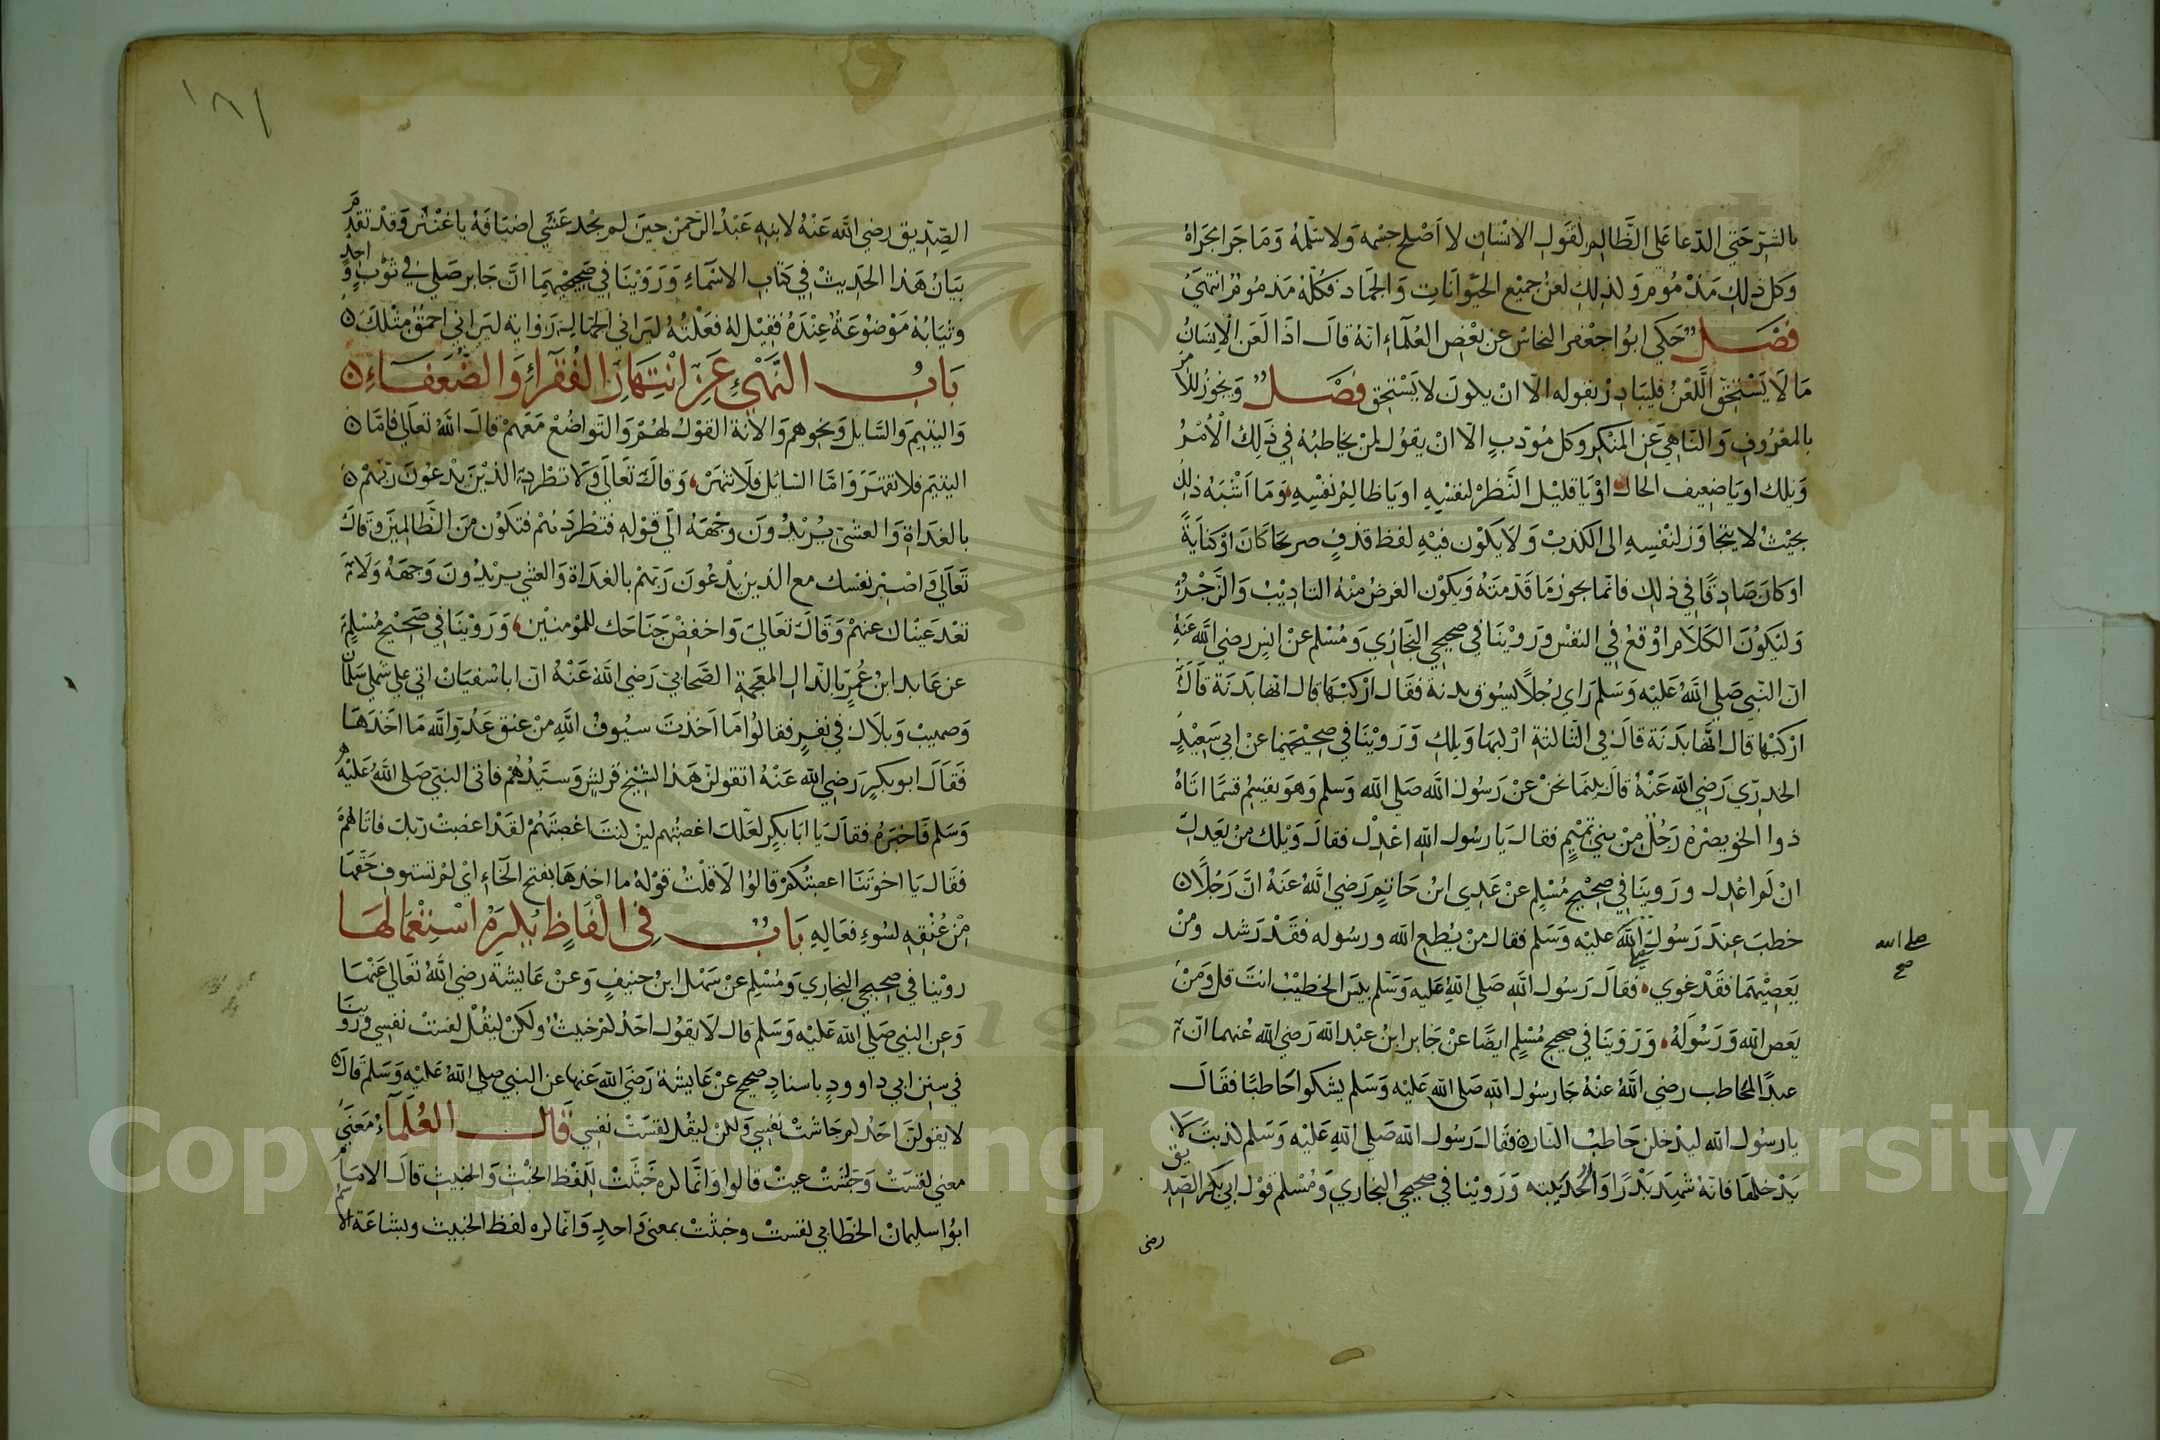 بالشرّ حَتّي الدّعا عَلى الظّالِم لقَولِ الانْسَانِ لا اَصْلح جسْمه وَلا سَلّمهُ وَمَا جَرا مجَراهُ
وَكل ذٰلِكَ مَذْمُوم وَلذٰلِكَ لعنُ جمِيْع الحيَوانَاتِ وَالجمَاد فكلّهُ مَذمُومٌ انتهيَ
فَصْـــل حَكي ابوُا جعْفر النحاسْ عن بعْضِ العُلمَاءِ انّهُ قالَ اذَا لَعَن الْاِنسَانُ
مَا لَا يَسْتحِقّ اللَّعْنَ فليُبَادِرْ بقوله الّا انْ يكونَ لا يَسْتحِق فصْـــل وَيجُوزُ للآمر
بالمعْرُوفِ وَالنّاهِي عَنِ المنْكرِ وَكل مُوَدّبٍ الّا انْ يقوُل لمنْ يخاطبُهُ في ذَلِكَ الْأمْرُ
وَيلك اوْ يَا ضعِيف الحَال اوْ يَا قليْل النَّظرْ لنفسْهِ او يَا ظالِمْ نفسْهِ وَمَا اَشْبَهُ ذلِكَ
بحيْثُ لا يتجاوَز لنفْسِهِ الى الكَذبْ وَلا يَكوْن فيْهِ لفظ قذفٍ صريحًا كَانَ اوْ كنَايَةً
اوكَانَ صَادِقًا في ذٰلِك فانّما يجوزُ مَا قَدّمنَهُ وَيكوْن الغرضُ مِنْهُ التادِيْبُ وَالزَّجْرُ
وَليَكوُنَ الكَلَام اوْقَعُ فِي النفس وَرَوَيْنا في صحِيحي البُخَارِي وَمُسْلم عنْ انسٍ رضي الله عَنهُ
انّ النّبي صَلي اللهُ عَليْه وَسَلم رَاي رَجُلًا يسُوق بدنة فقَال ارْكبْهَا قال انها بَدَنة قَالَ
ارْكبْها قالَ انَّها بَدَنة قالَ في الثّالثةِ ارْكبهَا وَيلك وَرَوَيْنا في صحِيْحَيهمَا عنْ ابي سَعِيْدٍ
الخدرِي رَضِي الله عَنْهُ قالَ بينمَا نحنْ عنْ رَسُول الله صَلي الله وَسَلم وَهوَ يقسِمُ قسْمًا اتَاهُ
ذوا الخويصرْه رَجُلٌ مِنْ بني تميْمٍ فقال يَا رسُول الله اعْدِلْ فقالَ وَيْلك منْ يَعدِلُ
انْ لَم اعْدِل ورَوينَا في صحِيْح مُسْلم عنْ عَدِي ابنُ حَاتمٍ رَضي اللهُ عَنهُ انَّ رَجُلًا
خطبَ عِندَ رَسُولَ الله عَليْه وَسَلم فقالَ منْ يُطِع الله ورسُوله فقدْ رَشد ومنْ
صلى الله
صح
يَعصِيْهمَا فقَدْ غوي فقَالَ رَسُول الله صَلي اللهُ عَليه وَسَلّم بيسَ الخطيْبُ انتَ قل وَمنْ
يَعصِ الله وَرَسُولَهُ وَرَوَينَا في صحِيح مُسْلمٍ ايضًا عنْ جَابر ابنُ عبْد الله رَضي الله عُنهما انّ
عبدًا لحاطب رضي اللهُ عنْهُ جَا رَسُول اللهِ صَلى الله عَليْه وَسَلم يشكوا حَاطبًا فقَالَ
يا رسُول الله ليدْخلن حَاطبُ النّار فقَال رَسُول الله صَلى اللهِ عَليْه وَسَلم كذبتَ لَا
يَدْخلهَا فانّهُ شهدَ بَدْرًا وَالحُدَيبيه وَرَوَيْنا في صحِيحِي البخَاري وَمُسْلم قوْل ابي بَكر الصّدِّيق
رضى
١٨١
الصِّدِّيق رضي الله عَنْهُ لابنهِ عَبْدُ الرّحمنْ حِينَ لم يجُد عَشّي اضيَافَهُ يا غنْثر وَقدْ تقدّم
بَيَانُ هَذا الحَدِيثْ في كتَاب الاسْمَاءِ وَرَوَيْنَا في صحِيحْيْهِمَا انَّ جَابر صَلى في ثوْبٍ وَاحِدٍ
وثيَابُهُ مَوْضوُعَةٌ عِنْدَهُ فقيْل لهُ فعَلْتهُ ليَرَاني الجهّال وَفي رَوَايه ليَرَاني احمَقُ مثْلكَ
بَابُ النَّهْيِ عَنِ انْتِهَارِ الفُقَرَاءِ وَالضُّعَفَـاءِ
وَاليتيمَ وَالسّايلَ وَنحوهم وَالَانَة القوْلُ لهُمْ وَالتّواضُعْ مَعَهُمْ قالَ اللهُ تعَالى فامَّا
اليَتيَم فلا تقهَرَ وَامّا السَّايلَ فلا تنهَرْ وَقالَ تعَالى وَلا تطرد الذيْنَ يدْعُونَ رَبّهُمْ
بالغدَاةِ وَالعشيّ يُرِيْدُونَ وَجْهَهُ الى قوْله فتَطْردَهُمْ فتكوْن منَ الظّالمِينَ وَقالَ
تَعَالى وَاصْبرْ نفسك مع الذين يَدْعُونَ رَبّهُمْ بالغدَاة وَالعشي يرِيْدُونَ وَجهَهُ وَلا
تعْد عَيْناكَ عنهمْ وَقَالَ تعَالى وَاخفِضْ جَنَاحَك للمُؤمِنين وَرَوَيْنا في صَحِيْح مُسْلمٍ
عن عَايد ابن عُمرٍ بالذّال المعجمَة الصَّحَابيّ رَضِي اللهُ عَنْهُ انّ ابا سُفيَانْ اتي علي سَلمان
وَصهيبْ وَبلَال في نفرٍ فقالوُا مَا اَخذتَ سيُوفُ الله منْ عنق عَدُوّ الله مَا اخذهَا
فقَالَ ابو بَكرٍ رَضِي الله عَنْهُ اتقولنَ هَذا لشيْخِ قريش وَسَيّدُهُمْ فاتى النبيّ صَلي اللهُ عَليْه
وَسَلم فَاخبَرهُ فقَالَ يَا ابَا بَكرٍ لعَلّكَ اغضبْتهم لينْ كنتَ اغضبْتهُمْ لقدْ اغضبتْ رَبّكَ فاتاهُم
فقال يَا اخوَتَنا اغضبتكُمْ قالوُا لَا قلْتُ قوْلهُ ما اخذهَا بفتح الخَاءِ ايْ لمْ تستوفِ حَقّهَا
مِنْ عُنْقِه لسُوءِ فعَاله بَابٌ فِي الْفَاظٍ يُكرَهُ اسْتِعْمَالُهَا
روَيْنا في صحِيحي البخَاري وَمُسْلِم عنْ سَهْل ابنُ حنِيفٍ وَعنْ عَايشَة رضي اللهُ تَعَالى عَنْهمَا
وَعن النبي صَلي الله عَليْه وَسَلم قال لَا يقوُل احَدُكم خبثتْ ولكنْ ليقُلْ لقستْ نفسي وَروَينَا
في سننِ ابي دَاوودٍ باسنادٍ صحيحٍ عنْ عَايشة رَضيَ الله عَنها عن النبي صلي اللهُ عَليْهِ وَسَلم قَالَ
لا يقولنَ احَدُكم جَاشتْ نفسِي وَلكنْ ليقُل لقسَتْ نفسِي قَالَ العُلَمَاءُ مَعْنَي
معْني لقسَتْ وَجَاشتْ غثيتْ قالوا وَانَّما كره خَبثتْ للَفْظِ الخبْثِ وَالخبيثِ قَالَ الامَام
ابوُا سليمانْ الخطّابي لقستْ وخبثتْ بمعنيَ وَاحدٍ وَانّما كره لفظ الخبيث وبشاعَة الاسم